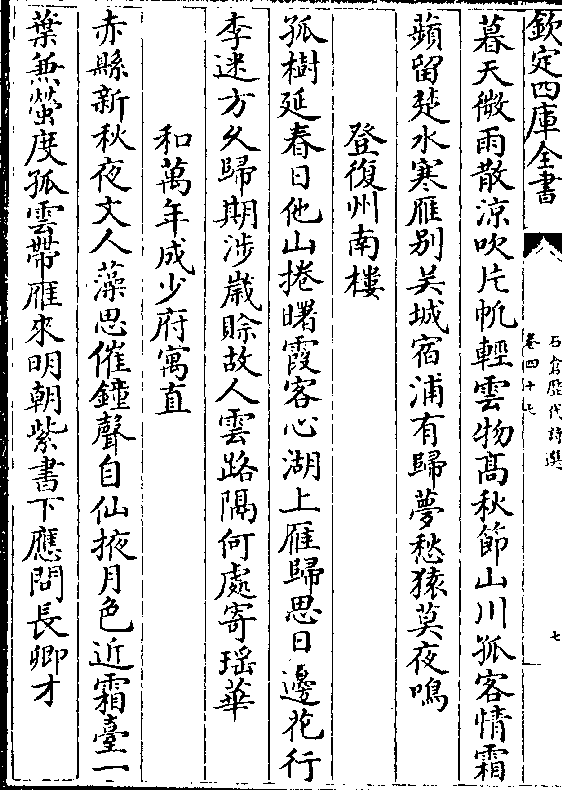 欽定四庫全書
石倉歷代詩選
卷四十七
七
暮天微雨散涼吹片帆輕雲物髙秋節山川孤客情霜
蘋留楚水寒雁别吳城宿浦有歸夢愁猿莫夜鳴
登復州南樓
孤樹延春日他山捲曙霞客心湖上雁歸思日邊花行
李迷方久歸期涉歲賒故人雲路隔何處寄瑶華
和萬年成少府寓直
赤縣新秋夜文人藻思催鐘聲自仙掖月色近霜臺一
葉兼螢度孤雲帶雁來明朝紫書下應問長卿才